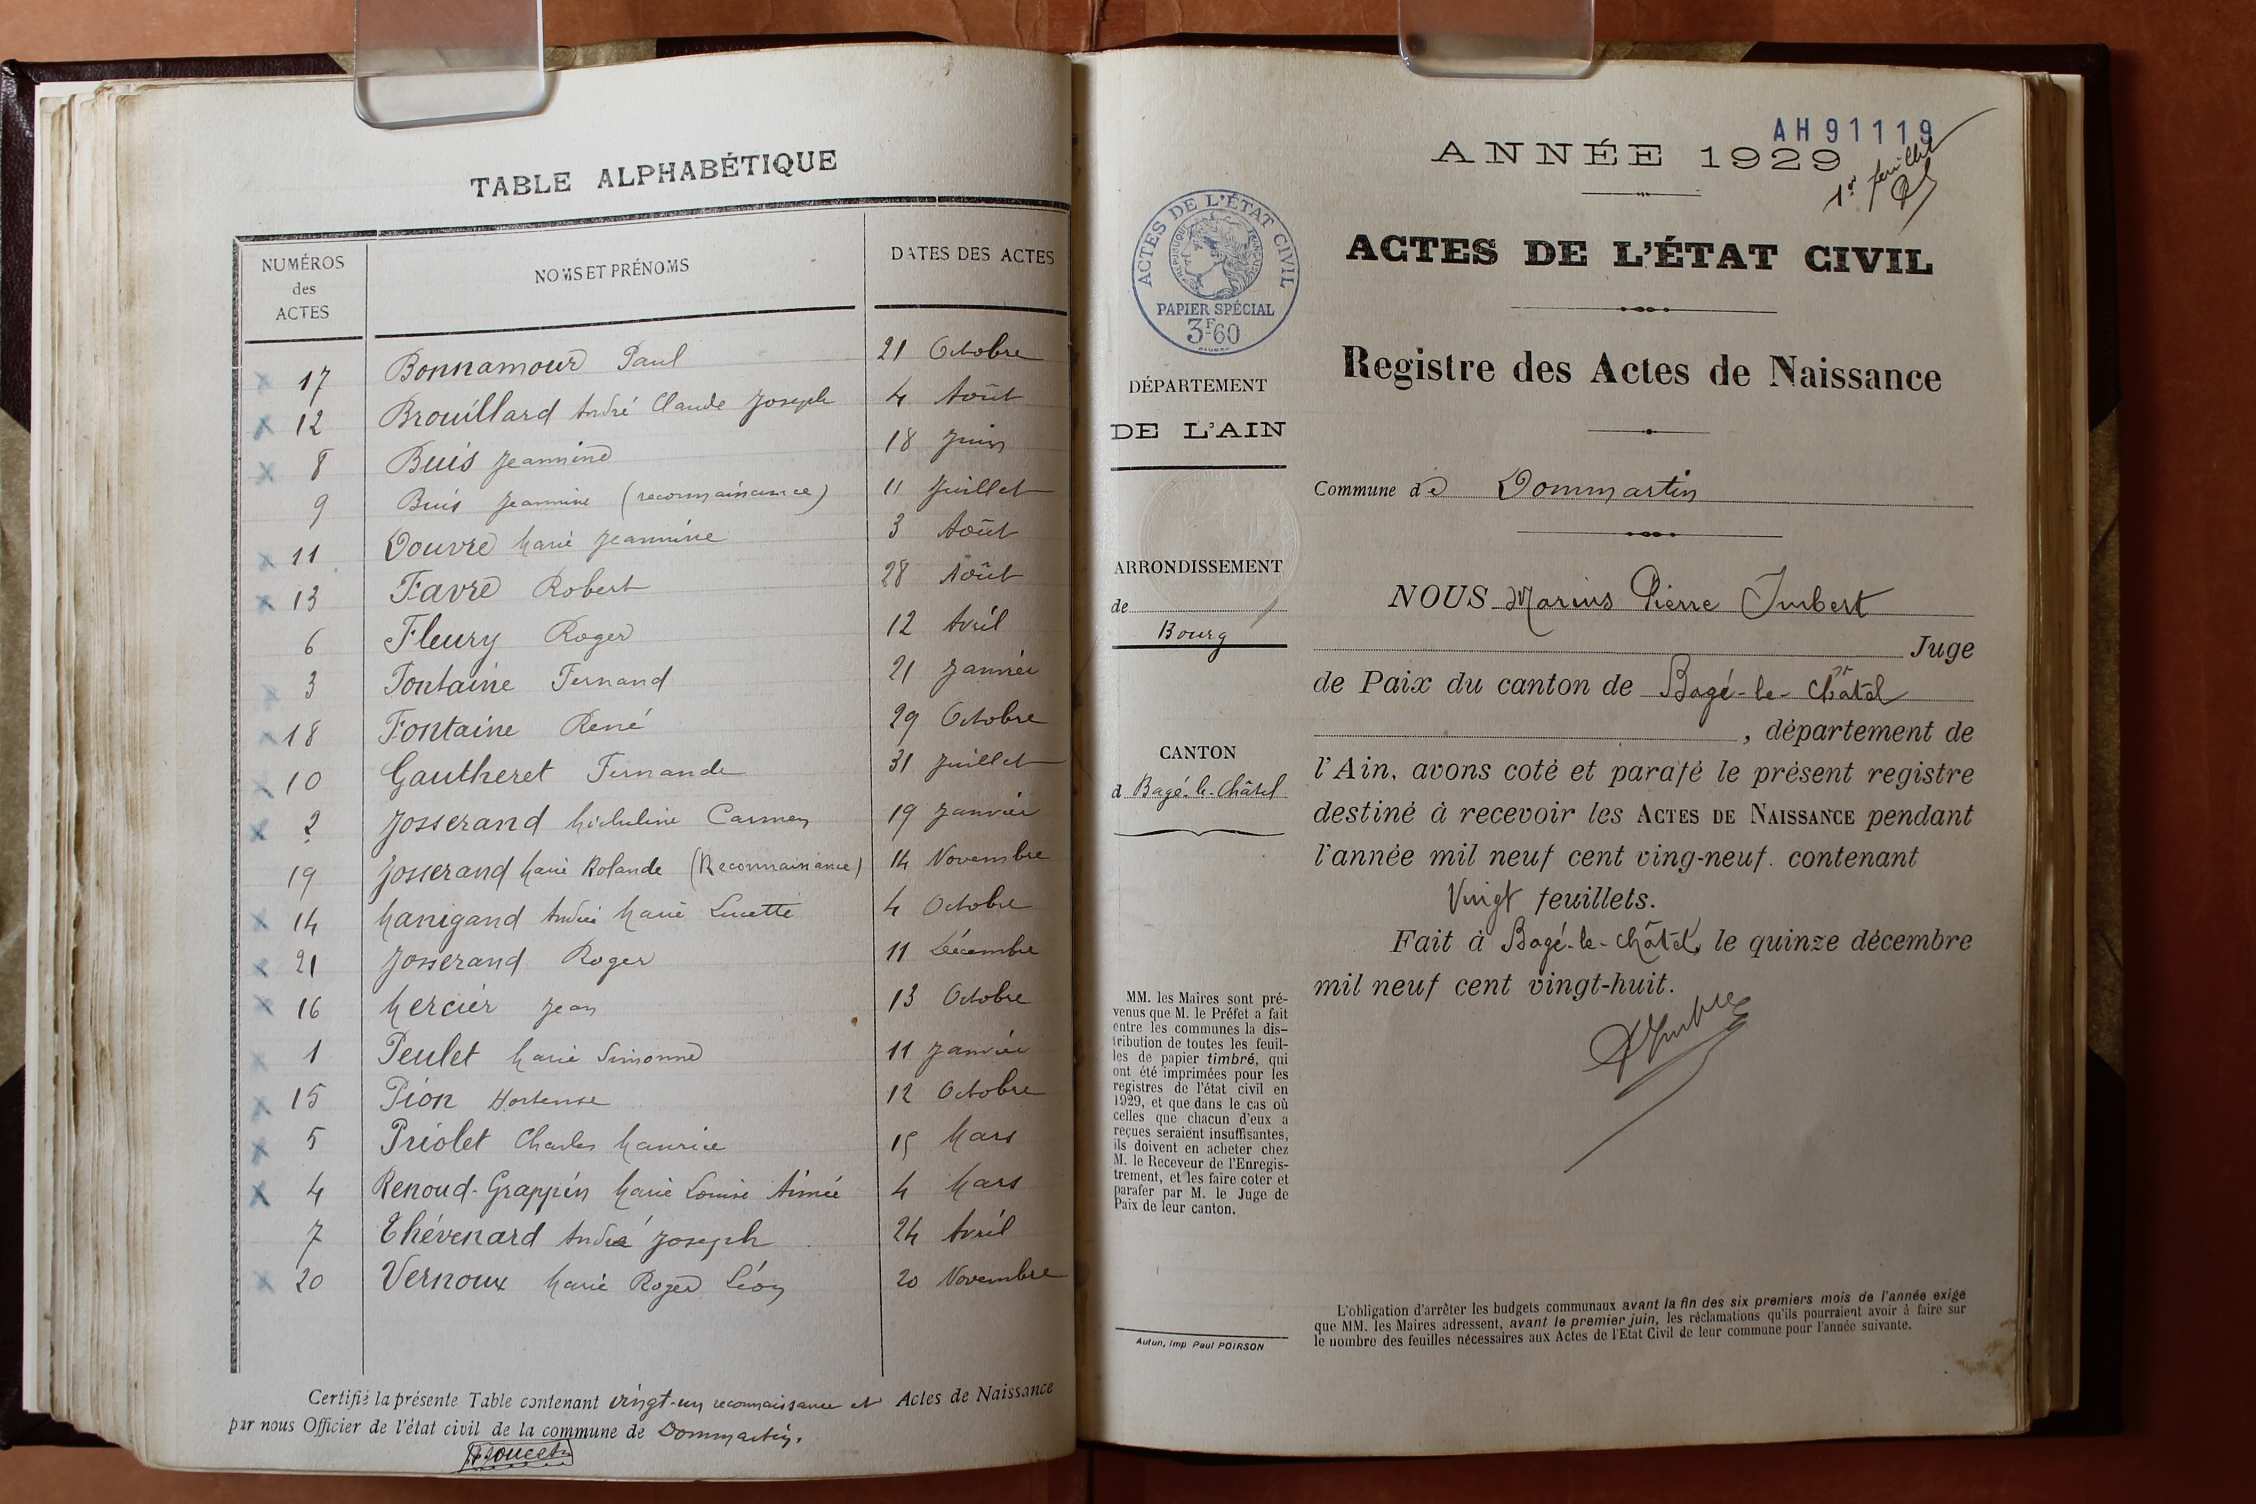 TABLE ALPHABÉTIQUE
NUMÉROS
des
ACTES
NOMS ET PRÉNOMS
DATES DES ACTES
17 Bonnamour Paul 21 Octobre
12 Brouillard André Claude Joseph 4 Août
8 Buis Jeannine 18 Juin
9 Buis Jeannine (reconnaissance) 11 Juillet
11 Douvre Marie Jeannine 3 Août
13 Favre Robert 28 Août
6 Fleury Roger 12 Avril
3 Fontaine Fernand 21 Janvier
18 Fontaine René 29 Octobre
10 Gautheret Fernande 31 Juillet
2 Josserand Micheline Carmen 19 Janvier
19 Josserand Marie Rolande (Reconnaissance) 14 Novembre
14 Manigand Andrée Marie Lucette 4 Octobre
21 Josserand Roger 11 Décembre
16 Mercier Jean 13 Octobre
1 Peulet Marie Simonne 11 Janvier
15 Pion Hortense 12 Octobre
5 Priolet Charles Maurice 15 Mars
4 Renoud-Grappin Marie Louise Aimée 4 Mars
7 Thévenard André Joseph 24 Avril
20 Vernoux Marie Roger Léon 20 Novembre
Certifié la présente Table contenant vingt-un reconnaissance et Actes de Naissance
par nous Officier de l'état civil de la commune de Dommartin.
AH91119
ANNÉE 1929
1er feuillet
ACTES DE L'ÉTAT CIVIL
RÉPUBLIQUE FRANÇAISE
PAPIER SPÉCIAL
3F60
ACTES DE L'ÉTAT CIVIL
Registre des Actes de Naissance
DÉPARTEMENT
DE L'AIN
Commune de Dommartin
ARRONDISSEMENT
de
Bourg
CANTON
d Bagé-le-Châtel
NOUS Marius Pierre Imbert
Juge
de Paix du canton de Bagé-le-Châtel
, département de
l'Ain, avons coté et parafé le présent registre
destiné à recevoir les ACTES DE NAISSANCE pendant
l'année mil neuf cent ving-neuf. contenant
Vingt feuillets.
Fait à Bagé-le-Châtel, le quinze décembre
mil neuf cent vingt-huit.
MM. les Maires sont pré-
venus que M. le Préfet a fait
entre les communes la dis-
tribution de toutes les feuil-
les de papier timbré, qui
ont été imprimées pour les
registres de l'état civil en
1929, et que dans le cas où
celles que chacun d'eux a
reçues seraient insuffisantes,
ils doivent en acheter chez
M. le Receveur de l'Enregis-
trement, et les faire coter et
parafer par M. le Juge de
Paix de leur canton.
Autun, imp Paul POIRSON
L'obligation d'arrêter les budgets communaux avant la fin des six premiers mois de l'année exige
que MM. les Maires adressent, avant le premier juin, les réclamations qu'ils pourraient avoir à faire sur
le nombre des feuilles nécessaires aux Actes de l'Etat Civil de leur commune pour l'année suivante.